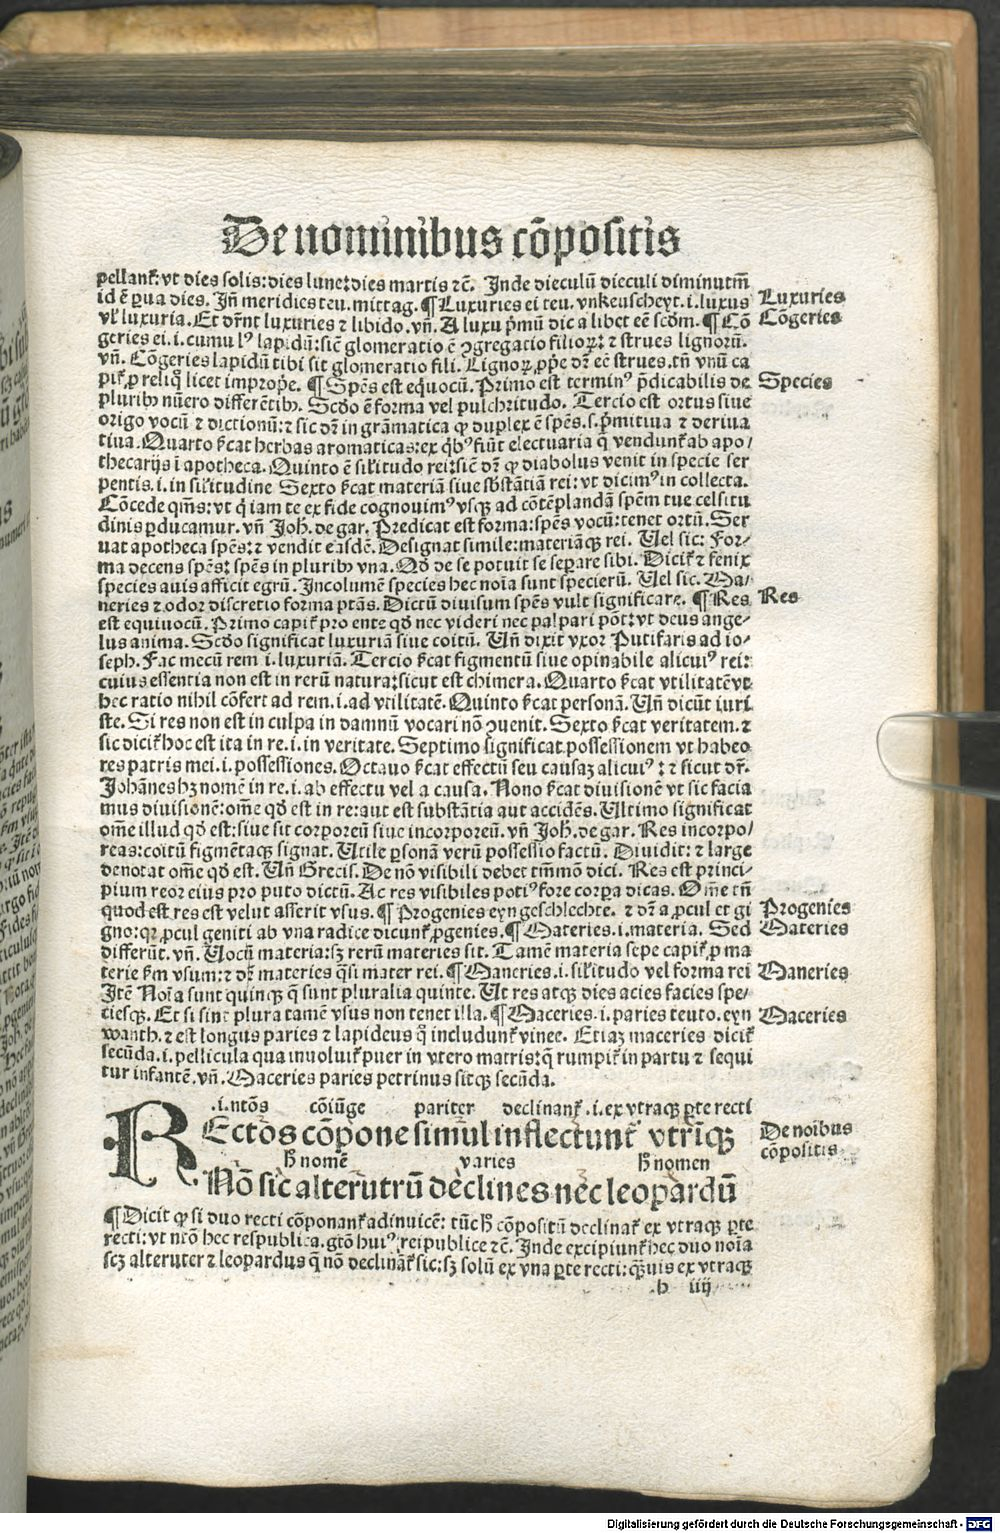 De nominibus cõpositis
pellant᷑: vt dies solis: dies lune: dies martis ⁊c̃. Inde dieculũ dieculi diminutiñ
id ẽ ꝑua dies. Iñ meridies teu. mittag. ¶ Luxuries ei teu. vnkeuscheyt. i. luxus
Luxuries
vl᷑ luxuria. Et dr̃nt luxuries ⁊ libido. vñ. A luxu p̃mũ dic a libet eẽ scd̃m. ¶ Cõ
Cõgeries
geries ei. i. cumulꝰ lapidũ: sic̃ glomeratio ẽ ꝯgregatio filioꝝ: ⁊ strues lignorũ.
vñ. Cõgeries lapidũ tibi sit glomeratio fili. Lignoꝝ ꝓpe dr̃ eẽ strues. tñ vnũ ca
pit᷑ ꝓ reliq̃ licet impropẽ. ¶ Spẽs est equocũ. Primo est terminꝰ p̃dicabilis de
Species
pluribꝫ nũero differẽtibꝫ. Scd̃o ẽ forma vel pulchritudo. Tercio est ortus siue
origo vocũ ⁊ dictionũ: ⁊ sic dr̃ in grãmatica ꝙ duplex ẽ spẽs. s. p̃mitiua ⁊ deriua
tiua. Quarto s̃cat herbas aromaticas: ex q̃bꝰ fiũt electuaria q̃ vendunt᷑ ab apo⸗
thecarijs ĩ apotheca. Quinto ẽ sil᷑itudo rei: sic̃ dr̃ ꝙ diabolus venit in specie ser
pentis. i. in sil᷑itudine Sexto s̃cat materiã siue sb̃stãtiã rei: vt dicimꝰ in collecta.
Cõcede qm̃s: vt q̃ iam te ex fide cognouimꝰ vsqꝫ ad cõtẽplandã spẽm tue celsitu
dinis ꝑducamur. vñ Joh̃. de gar. Predicat est forma: spẽs vocũ: tenet ortũ. Ser
uat apotheca spẽs: ⁊ vendit easdẽ. Designat simile: materiãqꝫ rei. Uel sic: For⸗
ma decens spẽs: spẽs in pluribꝫ vna. Qd̃ de se potuit se seꝑare sibi. Dicit᷑ ⁊ fenix
species auis afficit egrũ. Incolumẽ species hec noĩa sunt specierũ. Uel sic. Ma⸗
neries ⁊ odor discretio forma ptãs. Dictũ diuisum spẽs vult significare. ¶ Res
Res
est equiuocũ. Primo capit᷑ pro ente qd̃ nec videri nec palpari põt: vt deus ange⸗
lus anima. Scd̃o significat luxuriã siue coitũ. Uñ dixit vxor Putifaris ad io⸗
seph. Fac mecũ rem i. luxuriã. Tercio s̃cat figmentũ siue opinabile alicuiꝰ rei:
cuius essentia non est in rerũ natura: sicut est chimera. Quarto s̃cat vtilitatẽ vt
hec ratio nihil cõfert ad rem. i. ad vtilitatẽ. Quinto s̃cat personã. Uñ dicũt iuri
ste. Si res non est in culpa in damnũ vocari nõ ꝯuenit. Sexto s̃cat veritatem. ⁊
sic dicit᷑ hoc est ita in re. i. in veritate. Septimo significat possessionem vt habeo
res patris mei. i. possessiones. Octauo s̃cat effectũ seu causaꝫ alicuiꝰ: ⁊ sicut dr̃.
Johãnes hꝫ nomẽ in re. i. ab effectu vel a causa. Nono s̃cat diuisionẽ vt sic facia
mus diuisionẽ: oẽm qd̃ est in re: aut est substãtia aut accidẽs. Ultimo significat
oẽm illud qd̃ est: siue sit corporeũ siue incorporeũ. vñ Joh̃. de gar. Res incorpo⸗
reas: coitũ figmẽtaqꝫ signat. Utile ꝑsonã verũ possessio factũ. Diuidit: ⁊ large
denotat om̃e qd̃ est. Uñ Grecis. De nõ visibili debet tm̃mõ dici. Res est princi⸗
pium reor eius pro puto dictũ. Ac res visibiles potiꝰ fore corꝑa dicas. Om̃e tñ
quod est res est velut asserit vsus. ¶ Progenies eyn geschlechte. ⁊ dr̃ a ꝓcul et gi
Progenies
gno: qꝛ ꝓcul geniti ab vna radice dicunt᷑ ꝓgenies. ¶ Materies. i. materia. Sed
Materies
differũt. vñ. Uocũ materia: sꝫ rerũ materies sit. Tamẽ materia sepe capit᷑ ꝓ ma
terie s̃m vsum: ⁊ dr̃ materies q̃si mater rei. ¶ Maneries. i. sil᷑itudo vel forma rei
Maneries
Itẽ Noĩa sunt quinqꝫ q̃ sunt pluralia quinte. Ut res atqꝫ dies acies facies spe⸗
ciesqꝫ. Et si sint plura tamẽ vsus non tenet illa. ¶ Maceries. i. paries teuto. eyn
Maceries
wanth. ⁊ est longus paries ⁊ lapideus q̃ includunt᷑ vinee. Etiaꝫ maceries dicit᷑
secũda. i. pellicula qua inuoluit᷑ puer in vtero matris: q̃ rumpit᷑ in partu ⁊ sequi
tur infantẽ. vñ. Maceries paries petrinus sitqꝫ secũda.
.i. ntõs cõiũge pariter declinant᷑ .i. ex vtraqꝫ ꝑte recti
REctos cõpone simul inflectunt᷑ vtrĩqꝫ
De noĩbus
cõpositis
h̃ nomẽ varies h̃ nomen
Nõ sic alterutrũ declines nec leopardũ
¶ Dicit ꝙ si duo recti cõponant᷑ adinuicẽ: tũc h̃ cõpositũ declinat᷑ ex vtraqꝫ ꝑte
recti: vt ntõ hec respublica. gtõ huiꝰ reipublice ⁊c̃. Inde excipiunt᷑ hec duo noĩa
scꝫ alteruter ⁊ leopardus q̃ nõ declinãt᷑ sic: sꝫ solũ ex vna ꝑte recti: q̃uis ex vtraqꝫ
h iiij
Digitalisierung gefördert durch die Deutsche Forschungsgemeinschaft - DFG